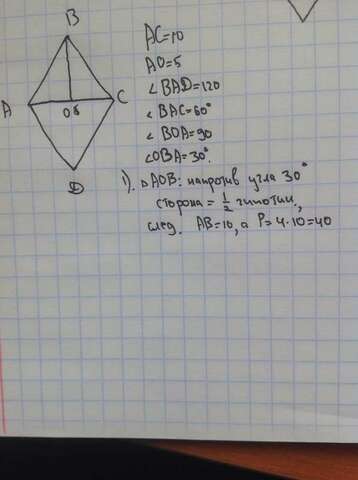 B
A
C
Об
D
AC=10
AO=5
∠BAD=120
∠BAC=60°
∠BOA=90
∠OBA=30°.
1). ΔAOB: напротив угла 30°
сторона = 1/2 гипотин.,
след. AB=10, а P=4·10=40